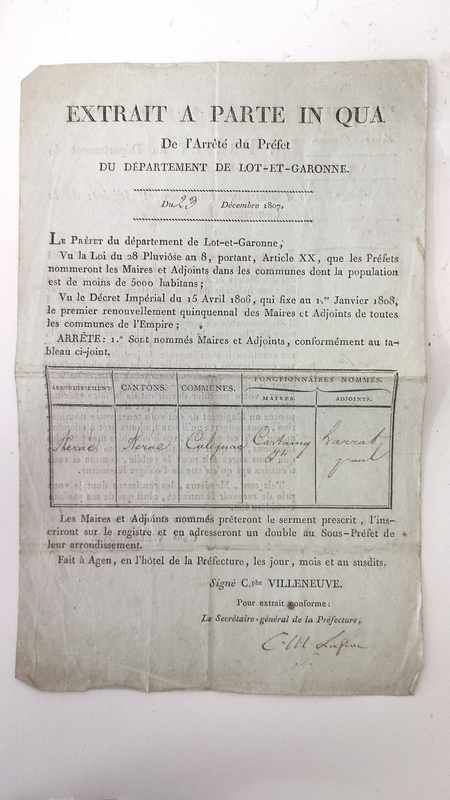 EXTRAIT A PARTE IN QUA
De l'Arrêté du Préfet
DU DÉPARTEMENT DE LOT-ET-GARONNE.
Du 23 Décembre 1807.
LE PRÉFET du département de Lot-et-Garonne,
Vu la Loi du 28 Pluviôse an 8, portant, Article XX, que les Préfets
nommeront les Maires et Adjoints dans les communes dont la population
est de moins de 5000 habitans;
Vu le Décret Impérial du 15 Avril 1806, qui fixe au 1.er Janvier 1808,
le premier renouvellement quinquennal des Maires et Adjoints de toutes
les communes de l'Empire;
ARRÊTE: 1.° Sont nommés Maires et Adjoints, conformément au ta-
bleau ci-joint.
ARRONDISSEMENT CANTONS. COMMUNES. FONCTIONNAIRES NOMMÉS.
MAIRES. ADJOINTS.
Nerac Nerac Calignac Castaing Larrat
paul
Les Maires et Adjoints nommés prêteront le serment prescrit, l'ins-
criront sur le registre et en adresseront un double au Sous-Préfet de
leur arrondissement.
Fait à Agen, en l'hôtel de la Préfecture, les jour, mois et an susdits.
Signé C.phe VILLENEUVE.
Pour extrait conforme:
Le Secrétaire-général de la Préfecture,